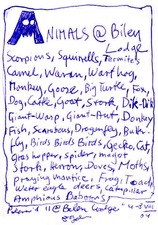 ANIMALS @ Biley
Lodge
Scorpions, Squirrells, Termites
Camel, Waran, Warthog,
Monkey, Goose, Big Turtle, Fox,
Dog, Cattle, Goat, Stork, Dik-Dik
Giant-Wasp, Giant-Ant, Donkey
Fish, Scarabous, Dragonfly, Butter-
fly, Birds Birds Birds, Gecko, Cat,
grashopper, spider, magot
Stork, Herron, Doves, Moths,
Praying mantice, Frog, Toads
Water eagle deers, Caterpillar
Amphious Baboons
@ Bilen Lodge